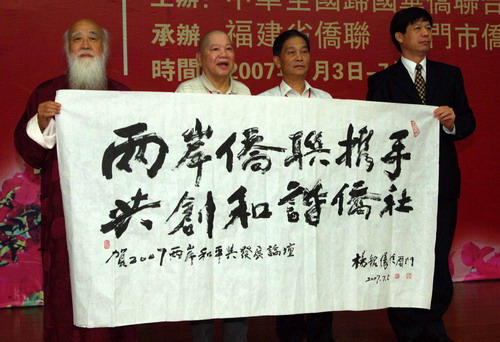 主辦：中華全國歸國華僑聯合
承辦：福建省僑聯 門市僑
時間：2007 月3日-7
兩岸僑聯携手
共創和諧僑社
賀2007兩岸和平與發展論壇
楊
2007.7.5